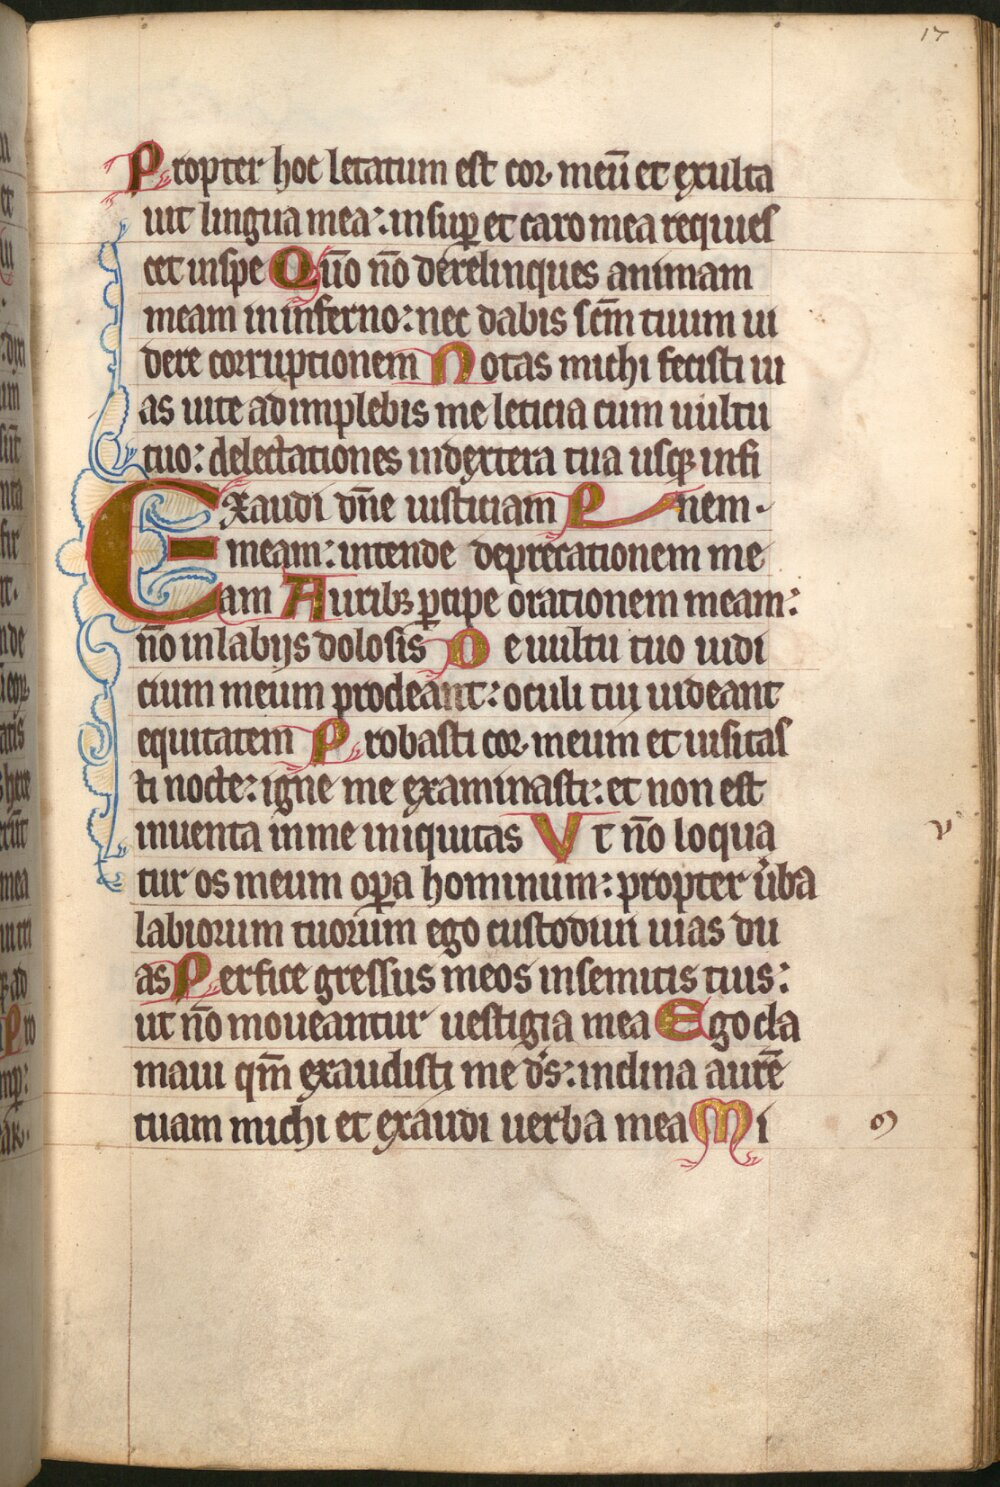 17
Propter hoc letatum est cor meū et exulta
uit lingua mea: insuꝑ et caro mea requies
cet in spe Qūo nō derelinques animam
meam in inferno: nec dabis sc̄m tuum ui
dere corruptionem Notas michi fecisti ui
as uite adimplebis me leticia cum uultu
tuo: delectationes indextera tua usqꝫ infi
Exaudi dn̄e iusticiam P nem.
meam: intende deprecationem me
am Auribꝫ ꝑcipe orationem meam:
nō in labijs dolosis De uultu tuo iudi
cium meum prodeant: oculi tui uideant
equitatem Probasti cor meum et uisitas
ti nocte: igne me examinasti: et non est
inuenta inme iniquitas Vt nō loqua
tur os meum oꝑa hominum: propter u̾ba
labiorum tuorum ego custodiui uias du
as Perfice gressus meos insemitis tuis:
ut nō moueantur uestigia mea Ego cla
maui qm̄ exaudisti me d̾s: inclina aurē
tuam michi et exaudi uerba mea Mi
v
m